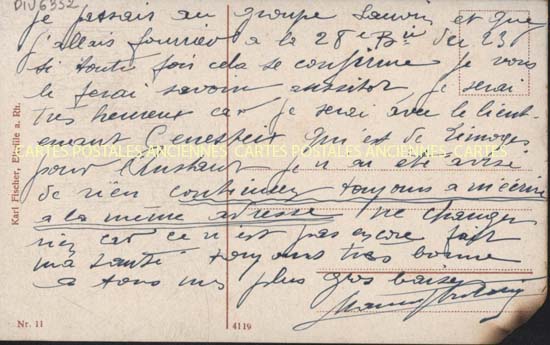 DIV6352
je passais au groupe et que
j'allais à la 28e Bie du 235
si toute fois cela se confirme je vous
le ferai savoir aussitôt je serai
très heureux car je serai avec le lieut-
enant qui est de Limoges
CARTES POSTALES ANCIENNES CARTES POSTALES ANCIENNES CARTES POSTALES ANCIENNES
pour l'instant je n'ai été avisé
de rien continuez toujours a m'écrire
a la même adresse ne changez
rien car ce n'est pas encore fait
ma santé toujours très bonne
a tous mes plus gros baisers
Karl Fischer, a. Rh.
Nr. 11
4119